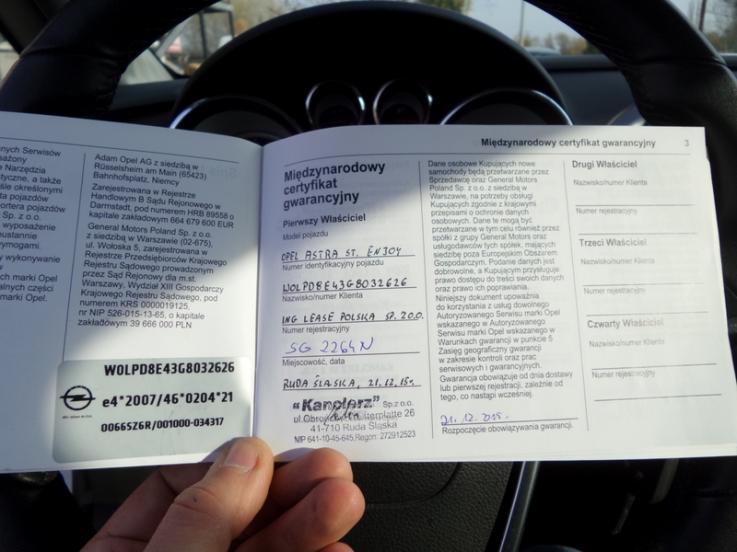 nych Serwisów
sażony
Narzędzia
tyczne, a także
śle określonymi
ta pojazdów
portera pojazdów
Sp. z o.o.
wyposażenie
ustannie
ymogami.
wy wykonywanie
w
marki Opel
alnych części
marki Opel.
Adam Opel AG z siedzibą w
Rüsselsheim am Main (65423)
Bahnhofsplatz, Niemcy
Zarejestrowana w Rejestrze
Handlowym B Sądu Rejonowego w
Darmstadt, pod numerem HRB 89558 o
kapitale zakładowym 664 679 600 EUR
General Motors Poland Sp. z o.o.
z siedzibą w Warszawie (02-675),
ul. Wołoska 5, zarejestrowana w
Rejestrze Przedsiębiorców Krajowego
Rejestru Sądowego prowadzonym
przez Sąd Rejonowy dla m.st.
Warszawy, Wydział XIII Gospodarczy
Krajowego Rejestru Sądowego, pod
numerem KRS 0000019125,
nr NIP 526-015-13-65, o kapitale
zakładowym 39 666 000 PLN
W0LPD8E43G8032626
e4*2007/46*0204*21
0066SZ6R/001000-034317
Międzynarodowy certyfikat gwarancyjny 3
Międzynarodowy
certyfikat
gwarancyjny
Pierwszy Właściciel
Model pojazdu
OPEL ASTRA ST. ENJOY
Numer identyfikacyjny pojazdu
W0LPD8E43G8032626
Nazwisko/numer Klienta
ING LEASE POLSKA SP. Z O.O.
Numer rejestracyjny
SG 2264N
Miejscowość, data
RUDA ŚLĄSKA, 21.12.15r.
"Kanclerz" Sp.z o.o.
41-710 Ruda Śląska
NIP 641-10-45-645,Regon: 272912523
Dane osobowe Kupujących nowe
samochody będą przetwarzane przez
Sprzedawcę oraz General Motors
Poland Sp. z o.o. z siedzibą w
Warszawie, na potrzeby obsługi
Kupujących zgodnie z krajowymi
przepisami o ochronie danych
osobowych. Dane te mogą być
przetwarzane w tym celu również przez
spółki z grupy General Motors oraz
usługodawców tych spółek, mających
siedzibę poza Europejskim Obszarem
Gospodarczym. Podanie danych jest
dobrowolne, a Kupującym przysługuje
prawo dostępu do treści swoich danych
oraz prawo ich poprawiania.
Niniejszy dokument upoważnia
do korzystania z usług dowolnego
Autoryzowanego Serwisu marki Opel
wskazanego w Autoryzowanego
Serwisu marki Opel wskazanego w
Warunkach gwarancji w punkcie 5
Zasięg geograficzny gwarancji
w zakresie kontroli oraz prac
serwisowych i gwarancyjnych.
Gwarancja obowiązuje od dnia dostawy
lub pierwszej rejestracji, zależnie od
tego, co nastąpi wcześniej.
21.12.2015r.
Rozpoczęcie obowiązywania gwarancji.
Drugi Właściciel
Nazwisko/numer Klienta
Numer rejestracyjny
Trzeci Właściciel
Nazwisko/numer Klienta
Numer rejestracyjny
Czwarty Właściciel
Nazwisko/numer Klienta
Numer rejestracyjny